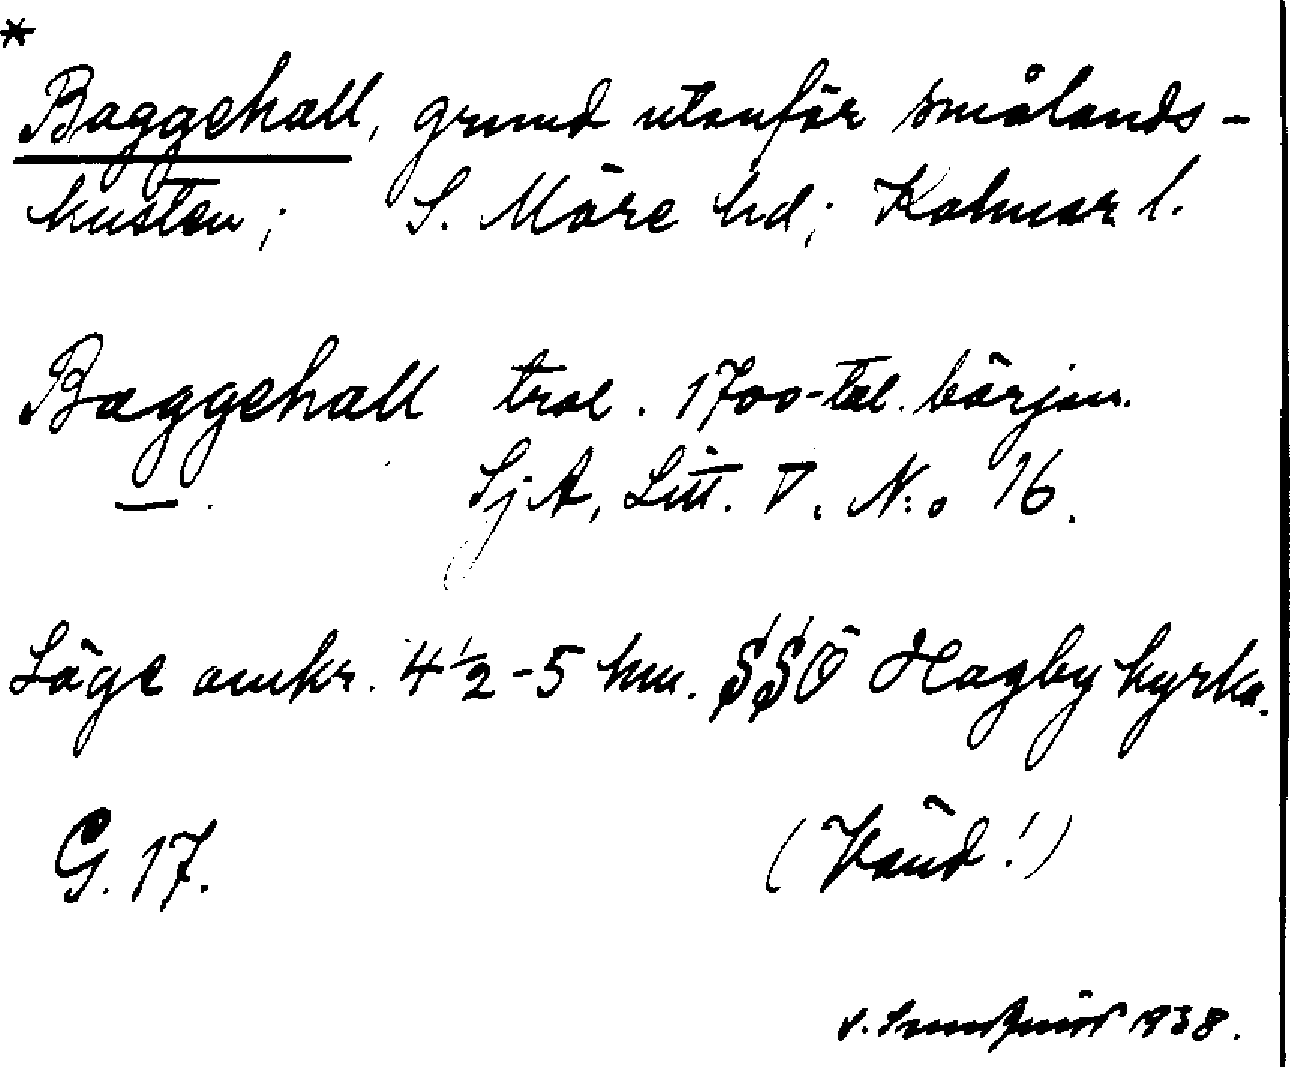 *
Baggehall, grund utanför smålands-
kusten; S. Möre hd; Kalmar l.
Baggehall trol. 1700-tal. början.
SjA, Litt. V. N:o 16.
Läge omkr. 4½-5 km. SSÖ Hagby kyrka.
G. 17. (Vänd!)
1938.